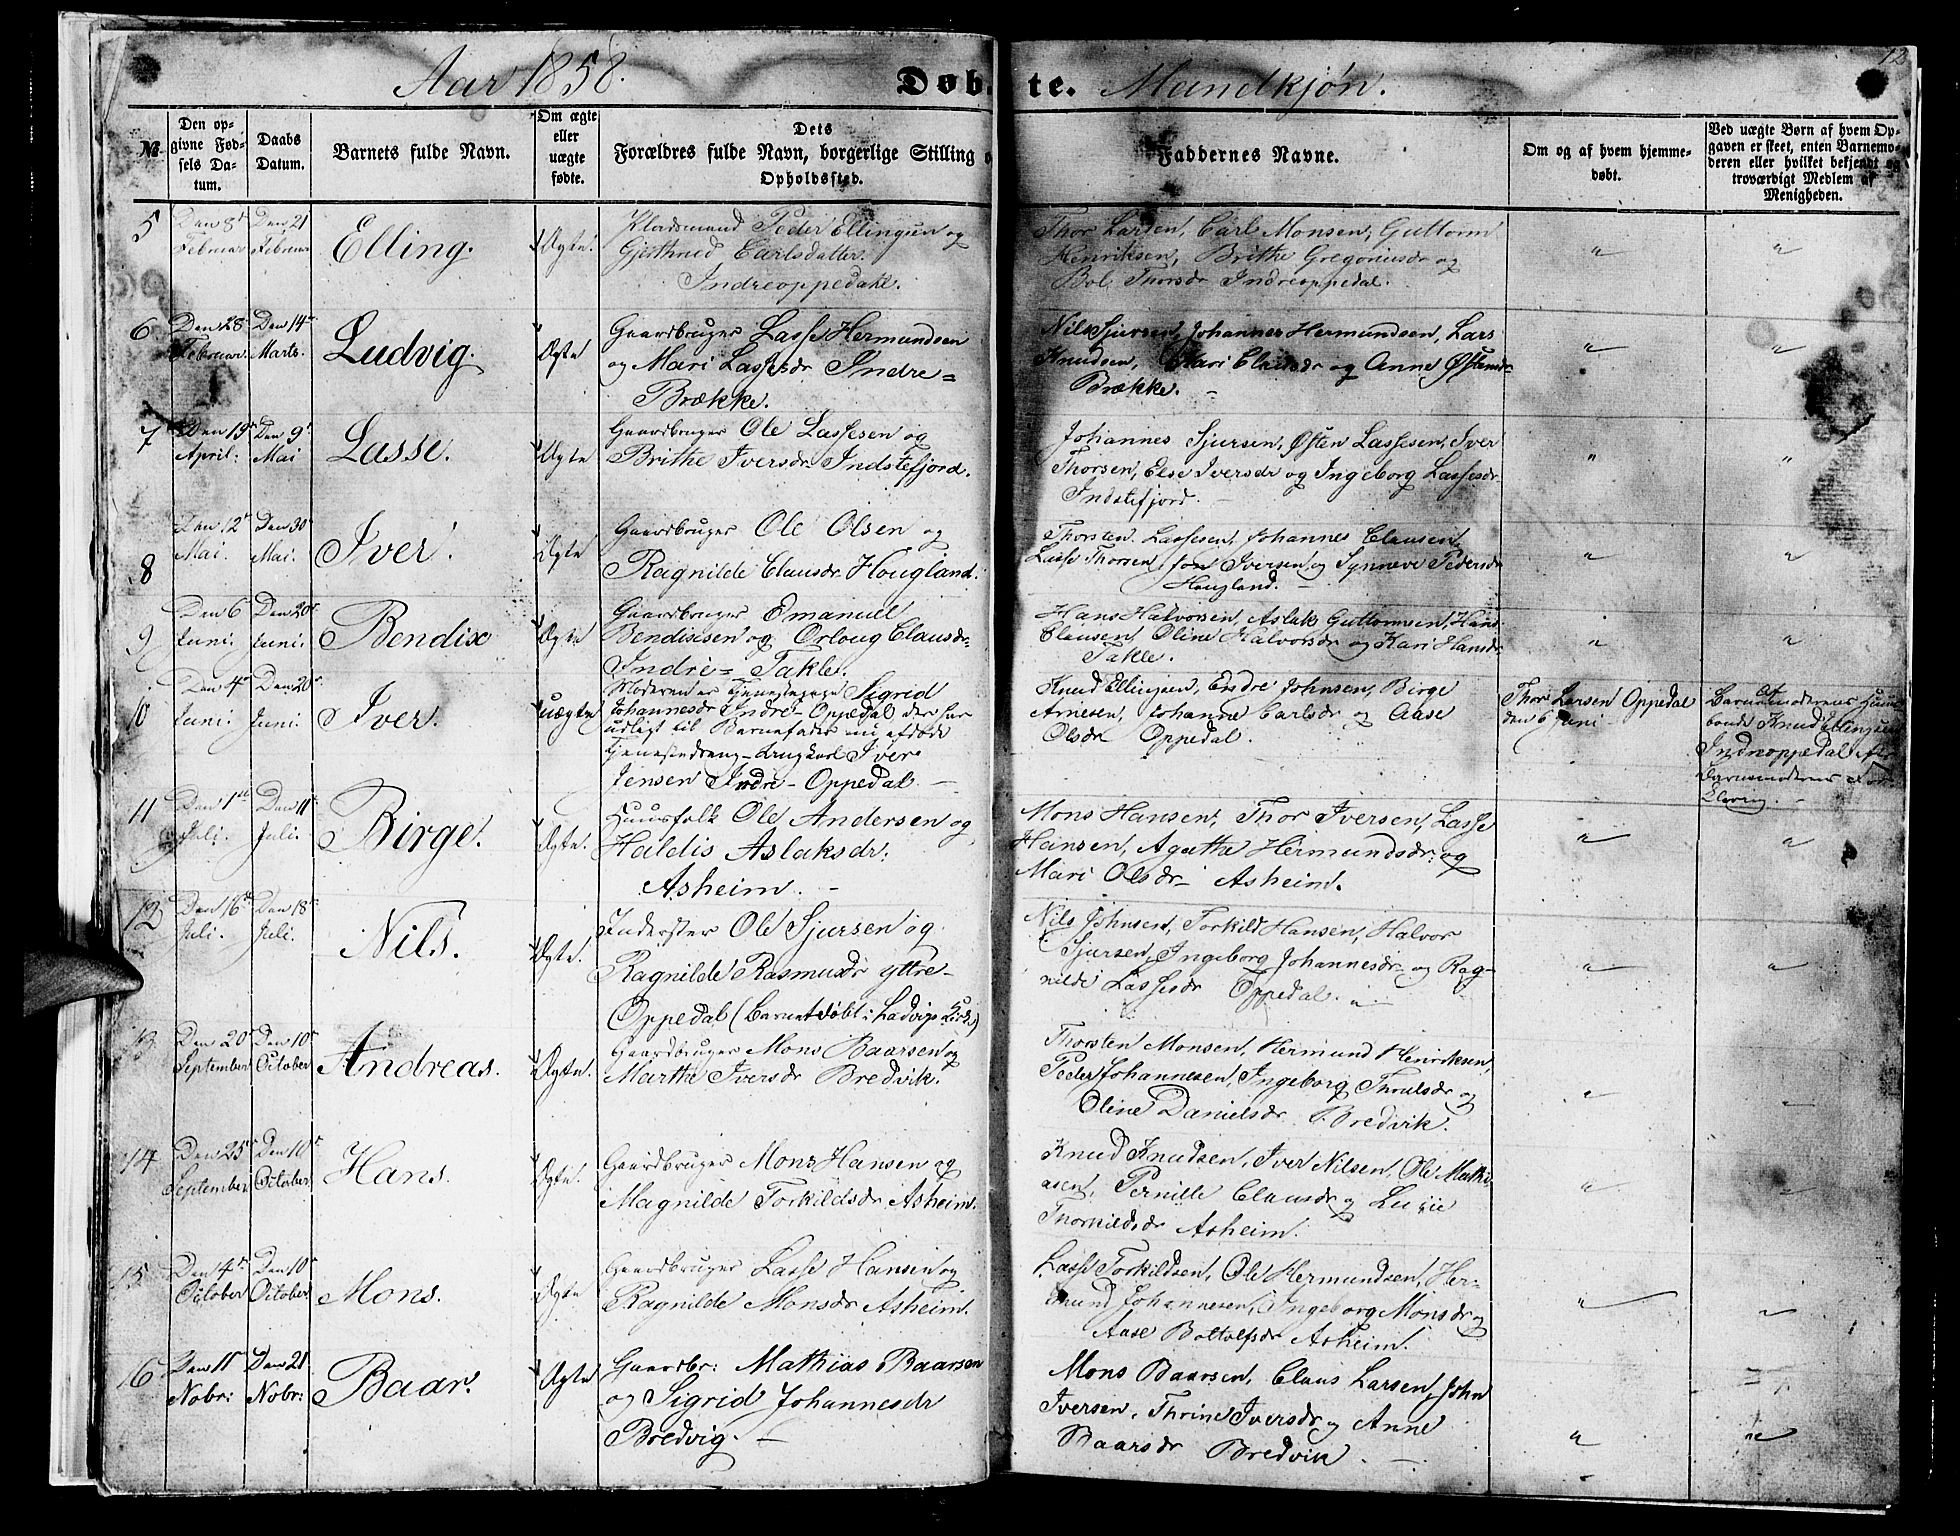 12
Aar 1858. Døbte. Mandkjøn.
№
Den opgivne Fødsels Datum.
Daabs Datum.
Barnets fulde Navn.
Om ægte eller uægte fødte.
Dets Forældres fulde Navn, borgerlige Stilling o
Opholdssted.
Faddernes Navne.
Om og af hvem hjemmedøbt.
Ved uægte Børn af hvem Opgaven er skeet, enten Barnemoderen eller hvilket bekjendt og troværdigt Medlem af Menigheden.
5
Den 8de Februar
Den 21 Februar
Elling.
Ægte.
Pladsmand Peder Ellingsen og
Gjerthrud Carlsdatter.
Indreoppedahl.
Thor Larsen, Carl Monsen, Guttorm
Henriksen, Brithe Gregoriusdr og
Bol. Thorsdr Indreoppedal.
"
"
6
Den 28 Februar.
Den 14de Marts.
Ludvig.
Ægte
Gaardbruger Lasse Hermundsen
og Mari Lassesdr Indre=
Brække.
Nils Sjursen, Johannes Hermundsen, Lars
Knudsen, Mari Clausdr og Anne Østensdr
Brække. –
"
"
7
Den 19de April:
Den 9de Mai
Lasse.
Ægte
Gaardbruger Ole Lassesen og
Brithe Iversdr Indstefjord.
Johannes Sjursen, Østen Lassesen, Iver
Thorsen, Else Iversdr og Ingeborg Lassesdr
Indstefjord. –
"
"
8
Den 12te Mai.
Den 30te Mai.
Iver.
Ægte
Gaardbruger Ole Olsen og
Ragnilde Clausdr Hougland.
Thorsten Lassesen, Johannes Clausen,
Lasse Thorsen, Jon Iversen og Synneve Pedersdr
Hougland. –
"
"
9
Den 6 Juni.
Den 20de Juni.
Bendix
Ægte
Gaardbruger Emanuel
Bendixsen og Orloug Clausdr
Indre= Takle.
Hans Halvorsen, Aslak Guttormsen, Hans
Clausen, Oline Halvorsdr og Kari Hansdr
Takle.
"
"
10
Den 4de Juni.
Den 20de Juni.
Iver.
uægte
Moderen er Tjenestepige Sigrid
Johannesdr Indre-Oppedal der har
udlagt til Barnefader nu afdøde
Tjenestedreng - Ungkarl Iver
Jensen Indre-Oppedal. –
Knud Ellingsen, Endre Johnsen, Birge
Arnesen, Johanne Carlsdr og Aase
Olsdr Oppedal.
Thor Larsen Oppedal
den 6 Juni
Af
Barnemoderens Huus
bonde Knud Ellingsen
Indreoppedal
Barnemoderen
11
Den 1ste Juli.
Den 11te Juli.
Birge.
Ægte.
Huusfolk Ole Andersen og
Haldis Aslaksdr:
Asheim. –
Mons Hansen, Thor Iversen, Lasse
Hansen, Agathe Hermundsdr: og
Mari Olsdr – Asheim.
"
"
12
Den 16de Juli.
Den 18de Juli.
Nils.
Ægte.
Inderster Ole Sjursen og
Ragnilde Rasmusdr yttre-
Oppedal (Barnet døbt i Ladvigs Kirke)
Nils Johnsen, Torkild Hansen, Halvor
Sjursen, Ingeborg Johannesdr og Rag-
nilde Lassesdr Oppedal.
"
"
13
Den 20de September
Den 10de October
Andreas.
Ægte.
Gaardbruger Mons Baarsen og
Marthe Iversdr Bredvik.
Thorsten Monsen, Hermund Henriksen,
Peder Johannesen, Ingeborg Throlsdr og
Oline Danielsdr Bredvik.
"
"
14
Den 25de September
Den 10de October
Hans.
Ægte.
Gaardbruger Mons Hansen og
Magnilde Torkildsdr Asheim.
Knud Knudsen, Iver Nilsen, Ole Mathi-
asen, Pernille Clausdr og
Thorkildsdr Asheim.
"
"
15
Den 4de October
Den 10de October
Mons.
Ægte
Gaardbruger Lasse Hansen og
Ragnilde Monsdr Asheim.
Lasse Torkildsen, Ole Hermundsen, Her-
mund Johannesen, Ingeborg Monsdr og
Aase Bottolfsdr Asheim.
"
"
16
Den 11te Nobr:
Den 21. Nobr:
Baar.
Ægte
Gaardbr: Mathias Baarsen
og Sigrid Johannesdr
Bredvig. –
Mons Baarsen, Claus Larsen, John
Iversen, Thrine Iversdr og Anne
Baarsdr Bredvik. –
"
"